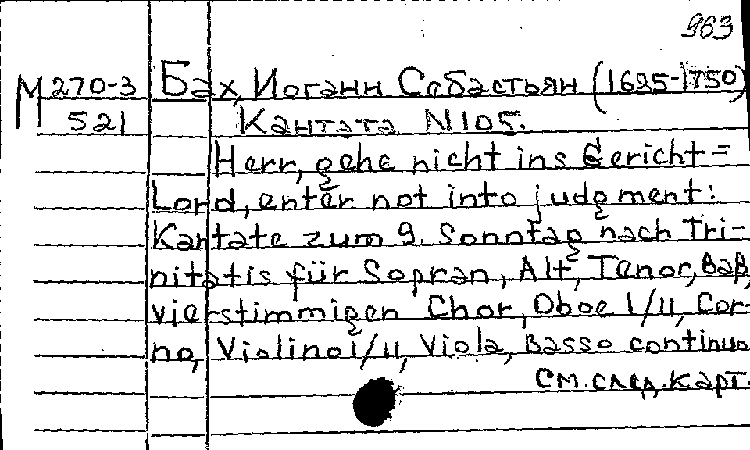 963
М 270-3 Бах, Иоганн Себастьян (1685-1750)
521 Кантата N 105.
Herr, gehe nicht ins Gericht =
Lord, enter not into judgment:
Kantate zum 9. Sonntag nach Tri-
nitatis für Sopran, Alt, Tenor, Baß,
vierstimmigen Chor, Oboe I/II, Cor-
no, Violino I/II, Viola, Basso continuo
См. след. карт.